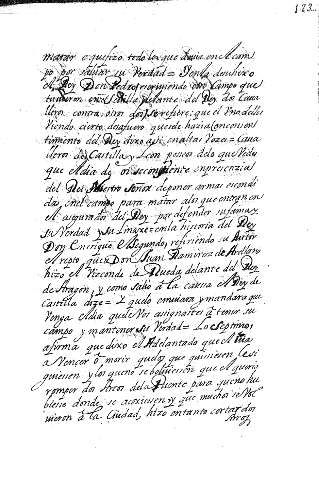 123.
matar o que hizo todo los que avia en el cam
po por salvar su Verdad = Y en la de su hixo
el Rey Don Pedro, refiriendo otro Campo que
tuvieron en Sevilla delante del Rey dos Cava
lleros contra otros dos, se refiere: que el Una de los
Viendo cierto desafuero que se hazia con consen
timiento del Rey dixo assi en altas Vozes = Cava
lleros de Castilla, y Leon pesevos delo que Vedes
que el dia de oi se consiente en presenzia
del Rey nuestro Señor de poner armas escondi
das, en el campo para matar alos que entran en
el asegurados del Rey por defender su fama, y
su Verdad y su Linaxe = en la historia del Rey
Don Enrique el Segundo, refiriendo su Autor
el repto, que Don Juan Ramirez de Arellano
hizo al Visconde de Rueda delante del Rey
de Aragon, y como salio â la causa el Rey de
Castilla dize = Y qudo embiara y mandara que
Venga el dia que le Vos asignaredes â tener su
campo y mantener su Verdad = Lo Septimo,
afirma que dixo el Adelantado que el iva
a Vencer ô morir que los que quisiesen le si
guiesen y los que no se bolviesen que el queria
romper dos Arcos de la Puente para que no hu
biese donde se acoxiesen, y que muchos se bol
vieron â la Ciudad, hizo en tanto cortar dos
Arcos